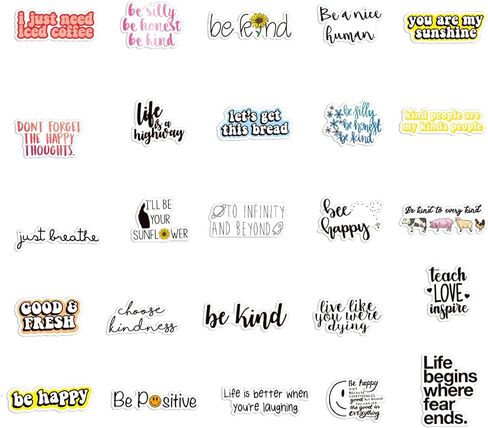 i just need
iced coffee
be silly
be honest
be kind
be kind
Be a nice
human.
you are my
sunshine
DON'T FORGET
THE HAPPY
THOUGHTS.
life
is a
highway
let's get
this bread
be silly
be honest
be kind
kind people are
my kinda people
just breathe
I'LL BE
YOUR
SUNFLOWER
TO INFINITY
AND BEYOND
bee
happy
Be kind to every kind
GOOD &
FRESH
choose
kindness
be kind
live like
you were
dying
teach
LOVE
inspire
be happy
Be Positive
Life is better when
you're laughing.
Be happy
NOT
BECAUSE
EVERYTHING IS
good
the good in
everything
Life
begins
where
fear
ends.